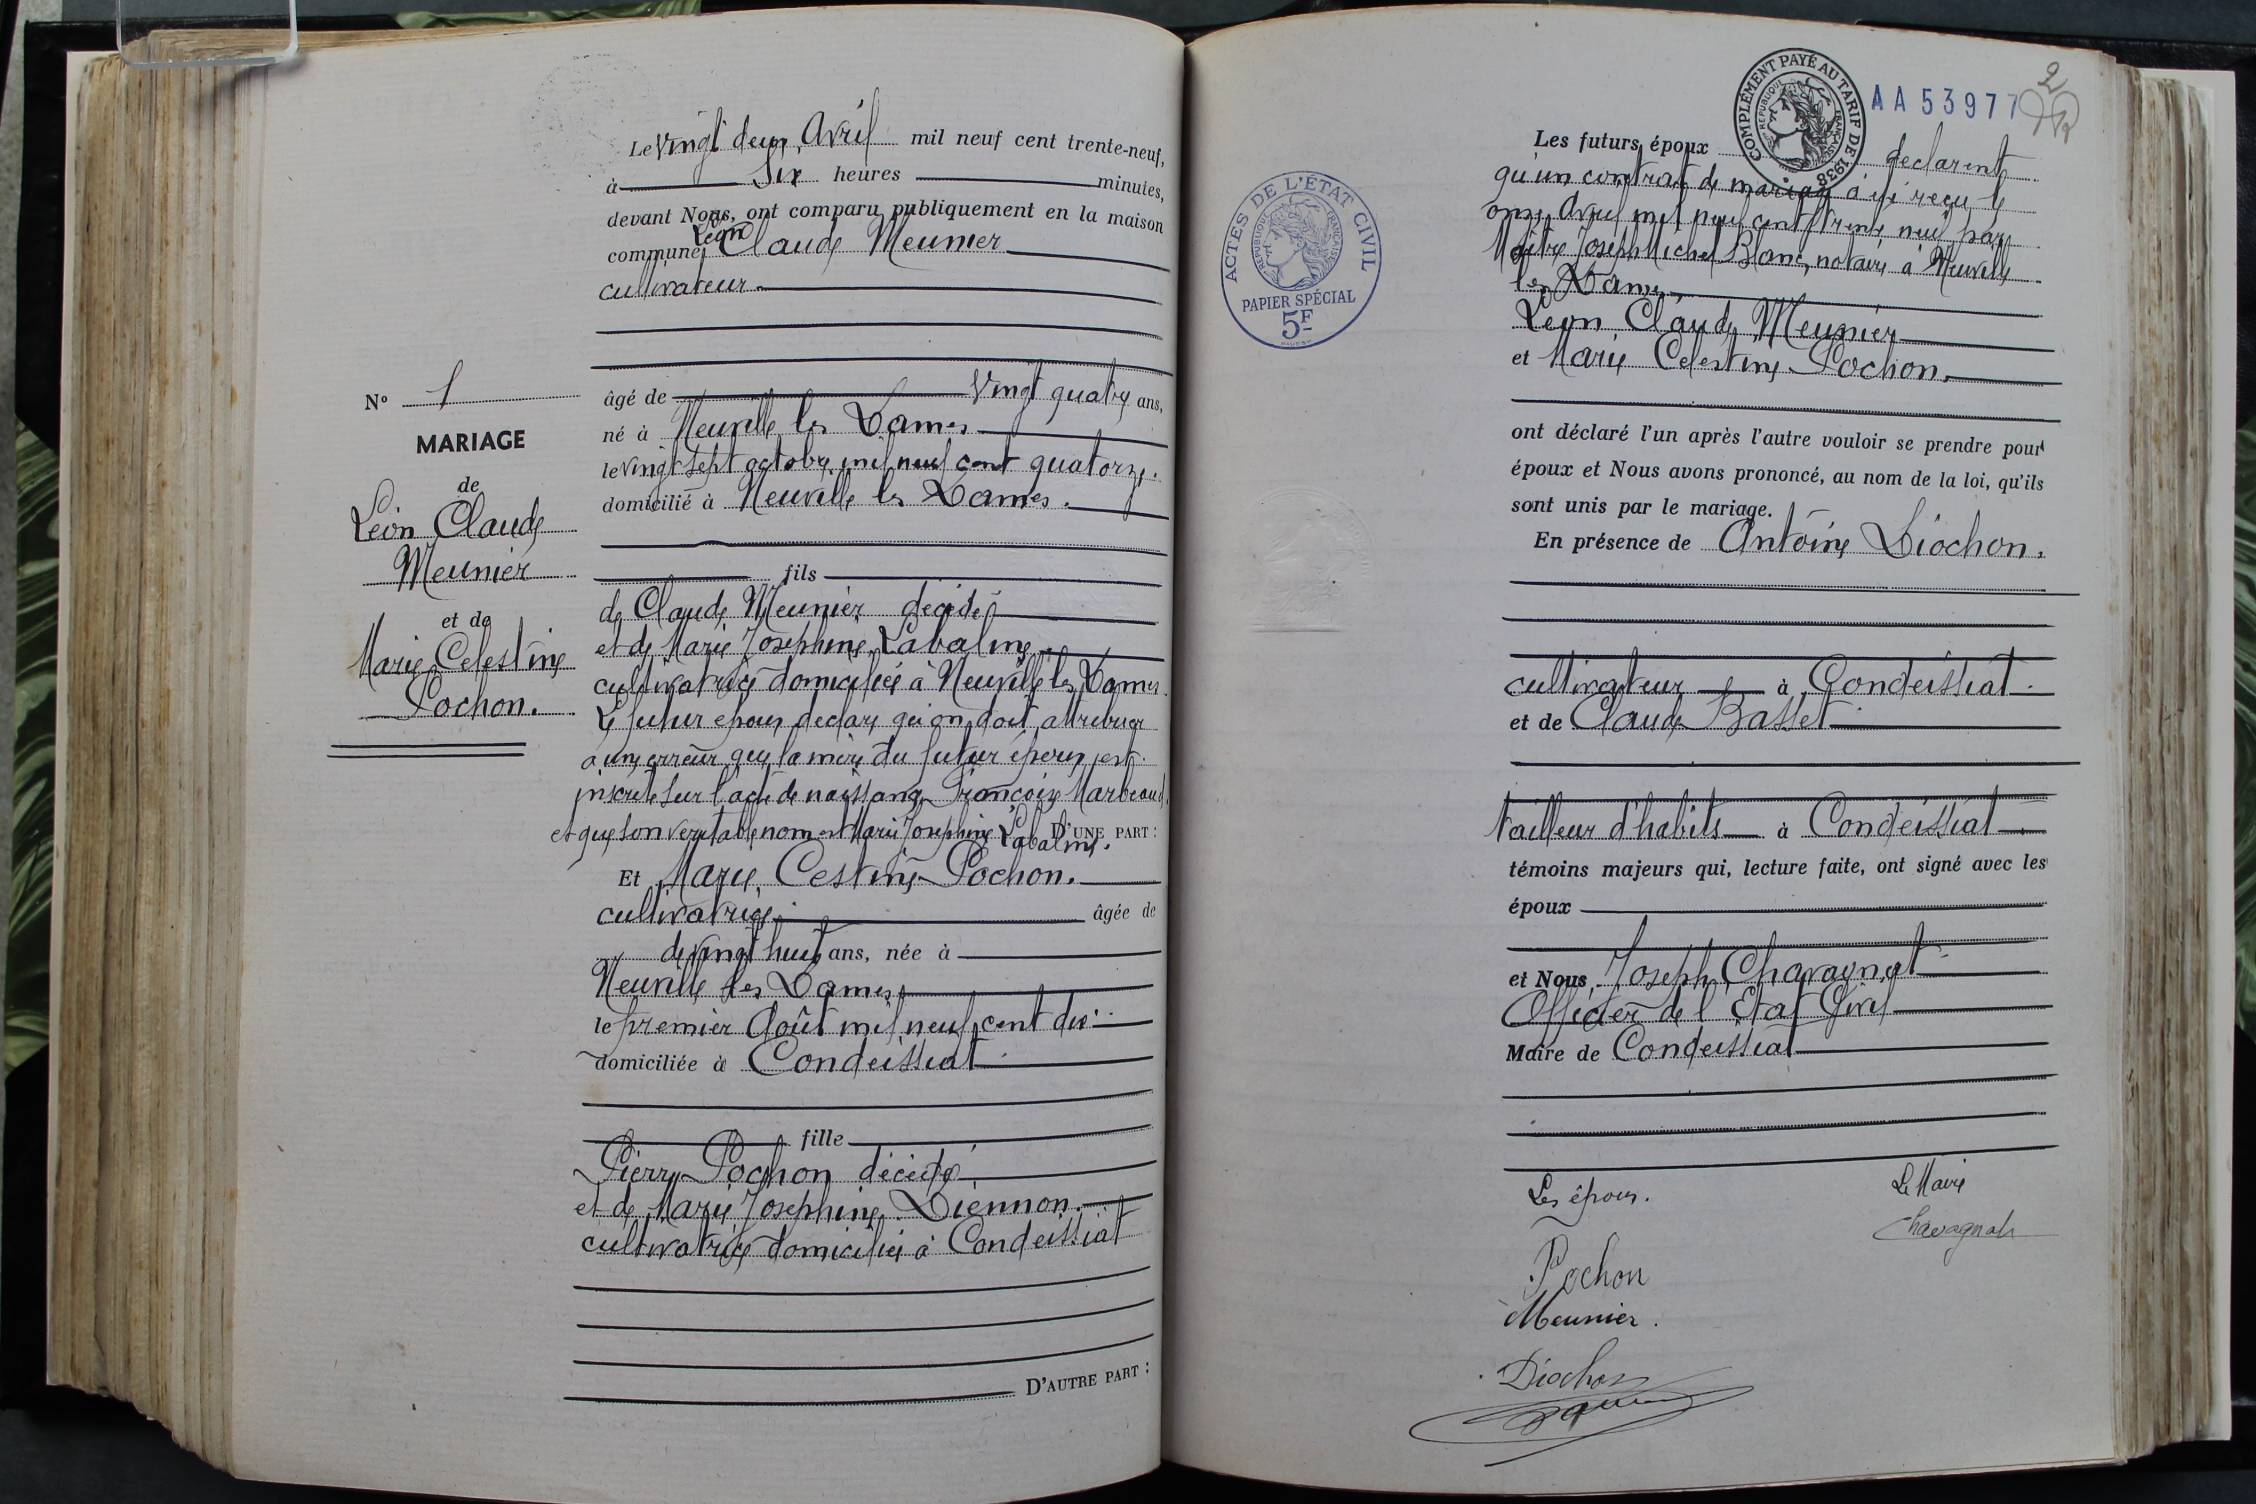 Le vingt deux Avril mil neuf cent trente-neuf,
à Six heures minutes,
devant Nous, ont comparu publiquement en la maison
commune, Léon Claude Meunier
cultivateur
N° 1
MARIAGE
de
Léon Claude
Meunier
et de
Marie Celestine
Pochon.
âgé de vingt quatre ans,
né à Neuville les Dames
le vingt sept octobre mil neuf cent quatorze.
domicilié à Neuville les Dames.
fils
de Claude Meunier décédé
et de Marie Josephine Labalme
cultivatrice domiciliée à Neuville les Dames
Le futur epoux declare qu'on doit attribuer
a une erreur que la mère du futur époux est
inscrite sur l'acte de naissance Françoise Marbeaud
et que son veritable nom est Marie Josephine Labalme. D'UNE PART :
Et Marie Cestine Pochon.
cultivatrice âgée de
de vingt huit ans, née à
Neuville les Dames
le premier Août mil neuf cent dix
domiciliée à Condeissiat
fille
Pierre Pochon décédé
et de Marie Josephine Diennon.
cultivatrice domiciliée à Condeissiat
D'AUTRE PART :
COMPLÉMENT PAYÉ AU TARIF DE 1938
RÉPUBLIQUE FRANÇAISE
AA 53977
2
ACTES DE L'ÉTAT CIVIL
RÉPUBLIQUE FRANÇAISE
PAPIER SPÉCIAL
5F
Les futurs époux declarent
qu'un contrat de mariage à été reçu le
onze Avril mil neuf cent trente neuf par
Maître Joseph Michel Blanc, notaire à Neuville
les Dames
Léon Claude Meunier
et Marie Celestine Pochon.
ont déclaré l'un après l'autre vouloir se prendre pour
époux et Nous avons prononcé, au nom de la loi, qu'ils
sont unis par le mariage.
En présence de Antoine Diochon.
cultivateur à Condeissiat
et de Claude Basset
tailleur d'habits à Condeissiat
témoins majeurs qui, lecture faite, ont signé avec les
époux
et Nous, Joseph Chavagnat
Officier de l'Etat Civil
Maire de Condeissiat
Les époux.
Le Maire
Chavagnat
Pochon
Meunier.
Diochon